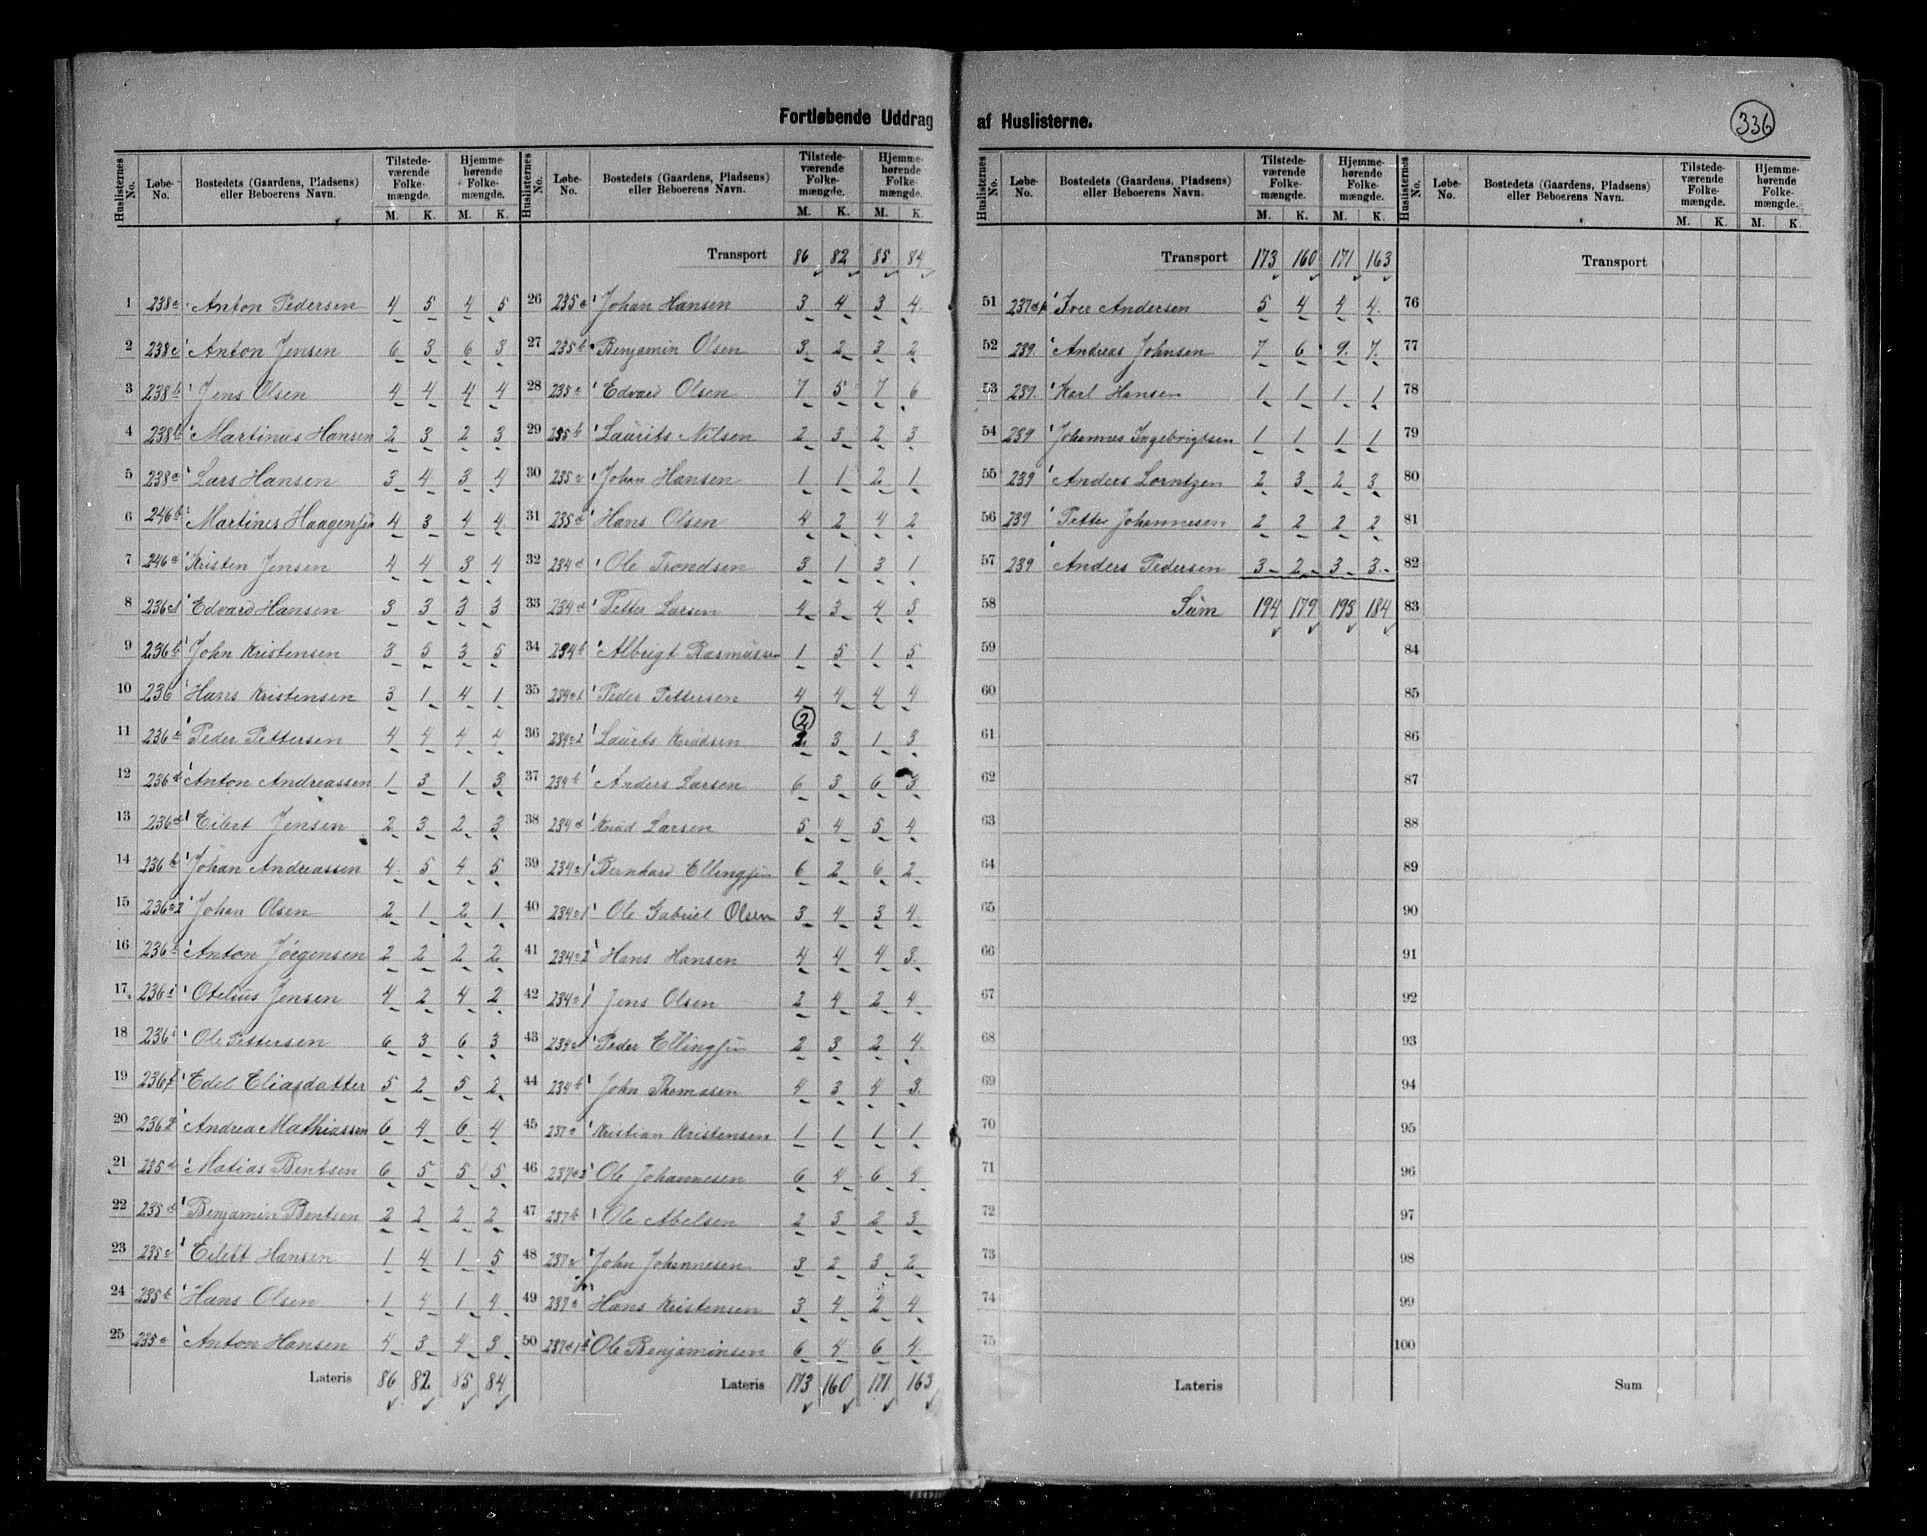 Fortløbende Uddrag af Huslisterne.
336
Huslisternes No. Løbe-No. Bostedets (Gaardens, Pladsens) eller Beboerens Navn. Tilstedeværende Folkemængde. M. K. Hjemmehørende Folkemængde. M. K.
1 238a Anton Pedersen 4 5 4 5
2 238c Anton Jensen 6 3 6 3
3 238b Jens Olsen 4 4 4 4
4 238b Martinus Hansen 2 3 2 3
5 238a Lars Hansen 3 4 3 4
6 246b Martines Haagensen 4 3 4 4
7 246a Kristen Jensen 4 4 3 4
8 236 Edvard Hansen 3 3 3 3
9 236b John Kristensen 3 5 3 5
10 236 Hans Kristensen 3 1 4 1
11 236 Peder Pettersen 4 4 4 4
12 236d Anton Andreassen 1 3 1 3
13 236d Eilert Jensen 2 3 2 3
14 236b Johan Andreassen 4 5 4 5
15 236a2 Johan Olsen 2 1 2 1
16 236 Anton Jørgensen 2 2 2 2
17 236 Otelius Jensen 4 2 4 2
18 236 Ole Pettersen 6 3 6 3
19 236 Edel Eliasdatter 5 2 5 2
20 236 Andrea Mathiassen 6 4 6 4
21 235d Matias Bentsen 6 5 5 5
22 235d Benjamin Bentsen 2 2 2 2
23 235a Eilert Hansen 1 4 1 5
24 235b Hans Olsen 1 4 1 4
25 235a Anton Hansen 4 3 4 3
Lateris 86 82 85 84
Huslisternes No. Løbe-No. Bostedets (Gaardens, Pladsens) eller Beboerens Navn. Tilstedeværende Folkemængde. M. K. Hjemmehørende Folkemængde. M. K.
Transport 86 82 85 84
26 235a Johan Hansen 3 4 3 4
27 235b Benjamin Olsen 3 2 3 2
28 235a Edvard Olsen 7 5 7 6
29 235b Laurits Nilsen 2 3 2 3
30 235a Johan Hansen 1 1 2 1
31 235d Hans Olsen 4 2 4 2
32 234d Ole Trondsen 3 1 3 1
33 234d Petter Larsen 4 3 4 3
34 234b Albrigt Rasmussen 1 5 1 5
35 234a1 Peder Pettersen 4 4 4 4
2
36 234a2 Laurits Knudsen 2 3 1 3
37 234b Anders Larsen 6 3 6 3
38 234d Knud Larsen 5 4 5 4
39 234a1 Bernhard Ellingsen 6 2 6 2
40 234a1 Ole Gabriel Olsen 3 4 3 4
41 234a2 Hans Hansen 4 4 4 3
42 234a1 Jens Olsen 2 4 2 4
43 234a1 Peder Ellingsen 2 3 2 4
44 234b John Thomasen 4 3 4 3
45 237a Kristian Kristensen 1 1 1 1
46 237a2 Ole Johannesen 6 4 6 4
47 237b Ole Abelsen 2 3 2 3
48 237a John Johannesen 3 2 3 2
49 237a Hans Kristensen 3 4 2 4
50 237d1 Ole Benjaminsen 6 4 6 4
Lateris 173 160 171 163
Huslisternes No. Løbe-No. Bostedets (Gaardens, Pladsens) eller Beboerens Navn. Tilstedeværende Folkemængde. M. K. Hjemmehørende Folkemængde. M. K.
Transport 173 160 171 163
51 237d Iver Andersen 5 4 4 4
52 239 Andreas Johnsen 7 6 9 7
53 239 Karl Hansen 1 1 1 1
54 239 Johannes Ingebrigtsen 1 1 1 1
55 239 Anders Lorntzen 2 3 2 3
56 239 Petter Johannesen 2 2 2 2
57 239 Anders Pedersen 3 2 3 3
58 Sum 194 179 193 184
59
60
61
62
63
64
65
66
67
68
69
70
71
72
73
74
75
Lateris
Huslisternes No. Løbe-No. Bostedets (Gaardens, Pladsens) eller Beboerens Navn. Tilstedeværende Folkemængde. M. K. Hjemmehørende Folkemængde. M. K.
Transport
76
77
78
79
80
81
82
83
84
85
86
87
88
89
90
91
92
93
94
95
96
97
98
99
100
Sum